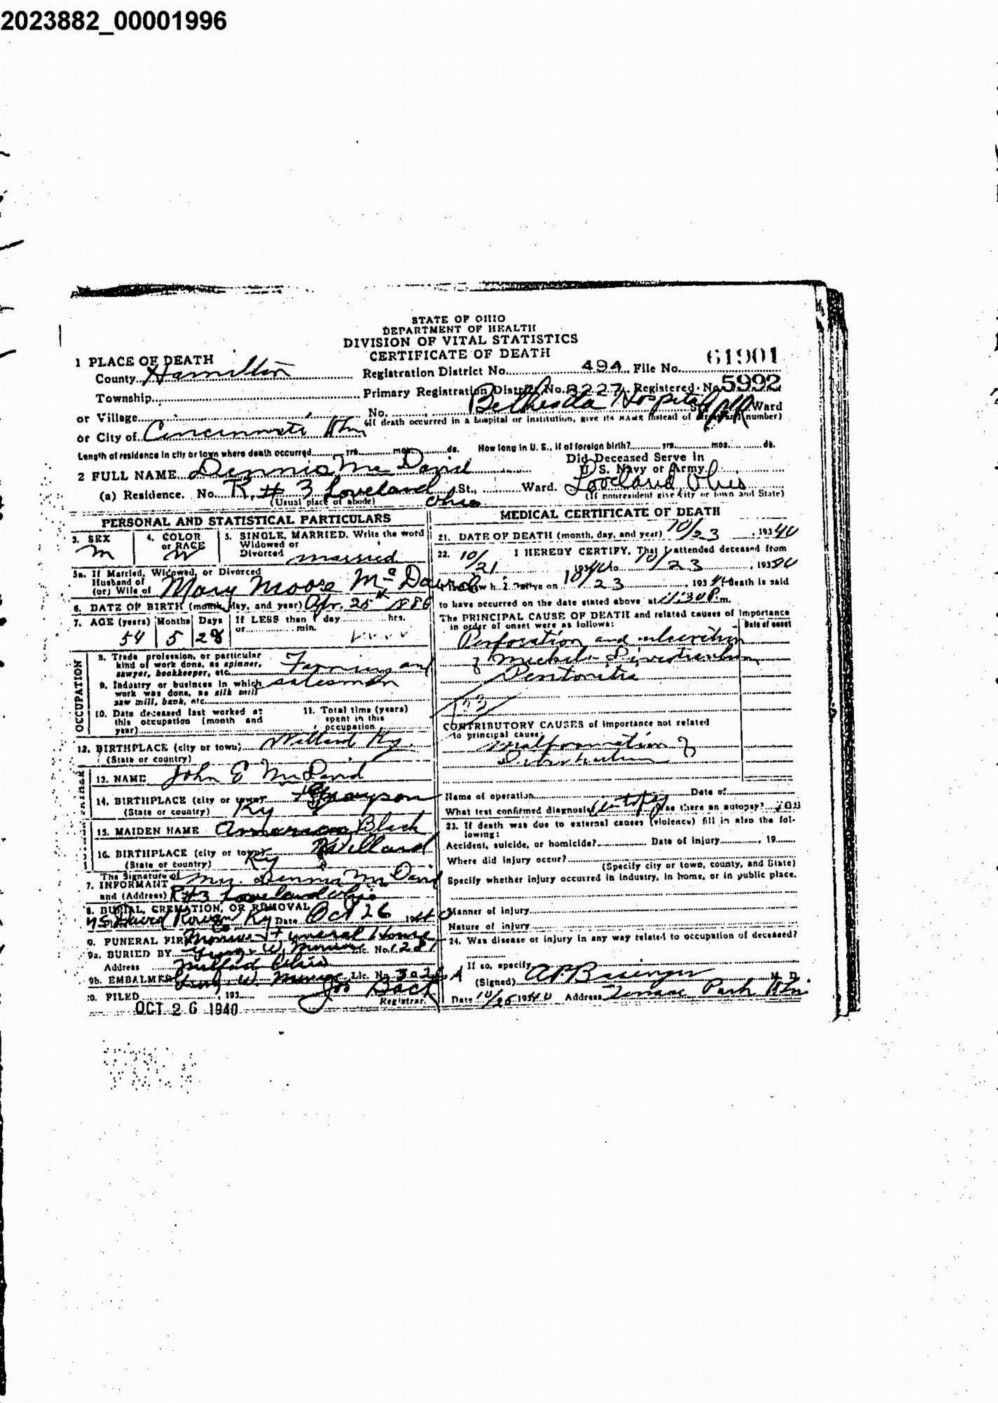 2023882_00001996
STATE OF OHIO
DEPARTMENT OF HEALTH
DIVISION OF VITAL STATISTICS
CERTIFICATE OF DEATH
1 PLACE OF DEATH
County Hamilton
Registration District No. 494 File No. 61901
Township
Primary Registration District No. 3227 Registered No. 5992
or Village
No. Bethesda Hospital St., Ward
(If death occurred in a hospital or institution, give its NAME instead of street and number)
or City of Cincinnati Ohio
Length of residence in city or town where death occurred yrs. mos. ds. How long in U. S., if of foreign birth? yrs. mos. ds.
2 FULL NAME Dennis McDavid
Did Deceased Serve in
U. S. Navy or Army
(a) Residence. No. R.#3 Loveland Ohio St., Ward. Loveland Ohio
(Usual place of abode) (If nonresident give city or town and State)
PERSONAL AND STATISTICAL PARTICULARS
3. SEX M
4. COLOR or RACE W
5. SINGLE, MARRIED, Write the word
Widowed or
Divorced married
5a. If Married, Widowed, or Divorced
Husband of
(or) Wife of Mary Moore McDavid
6. DATE OF BIRTH (month, day, and year) Apr. 25 1886
7. AGE (years) 54 Months 5 Days 28 If LESS than 1 day hrs.
or min.
OCCUPATION
8. Trade profession, or particular
kind of work done, as spinner,
sawyer, bookkeeper, etc. Farming and
salesman
9. Industry or business in which
work was done, as silk mill
saw mill, bank, etc.
10. Date deceased last worked at
this occupation (month and
year)
11. Total time (years)
spent in this
occupation
12. BIRTHPLACE (city or town) Willard Ky.
(State or country)
13. NAME John E McDavid
14. BIRTHPLACE (city or town) Grayson
(State or country) Ky
15. MAIDEN NAME America Black
16. BIRTHPLACE (city or town) Willard
(State or country) Ky
The Signature of
7. INFORMANT Mrs Dennis McDavid
and (Address) R#3 Loveland Ohio
8. BURIAL, CREMATION, OR REMOVAL
Ky Date Oct 26 1940
9. FUNERAL FIRM Funeral Home
9a. BURIED BY Lic. No.
Address Milford Ohio
9b. EMBALMER Lic. No.
20. FILED , 193
Registrar.
OCT 26 1940
MEDICAL CERTIFICATE OF DEATH
21. DATE OF DEATH (month, day, and year) 10/23 , 193 40
22. I HEREBY CERTIFY, That I attended deceased from
10/21 , 1940 to 10/23 , 193 40
I last saw h i m alive on 10/23 , 193 death is said
to have occurred on the date stated above at 11:30 P. m.
The PRINCIPAL CAUSE OF DEATH and related causes of importance
in order of onset were as follows: Date of onset
Perforation and ulceration
of Meckel's Diverticulum
Peritonitis
CONTRIBUTORY CAUSES of importance not related
to principal cause:
Malformation of
Name of operation Date of
What test confirmed diagnosis? Autopsy Was there an autopsy? yes
23. If death was due to external causes (violence) fill in also the fol-
lowing:
Accident, suicide, or homicide? Date of injury , 19
Where did injury occur?
(Specify city or town, county, and State)
Specify whether injury occurred in industry, in home, or in public place.
Manner of injury
Nature of injury
24. Was disease or injury in any way related to occupation of deceased?
If so, specify
(Signed) M. D.
Date 10/25 1940 Address Terrace Park Ohio